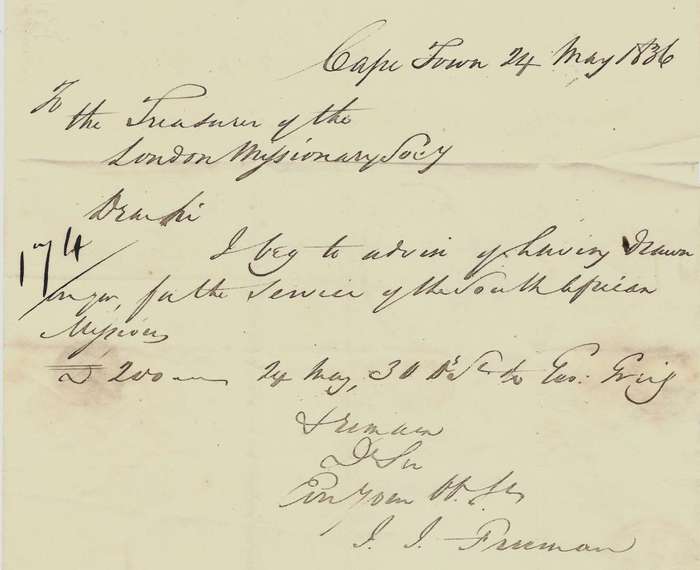 Cape Town 24 May 1836
To
the Treasurer of the
London Missionary Socy
Dear Sir
I beg to advise of having Drawn
on you, for the Service of the South African
Missions
£ 200 — 24 May, 30 Ds St to Geo: Greig
I remain
Dr Sir
J. J. Freeman